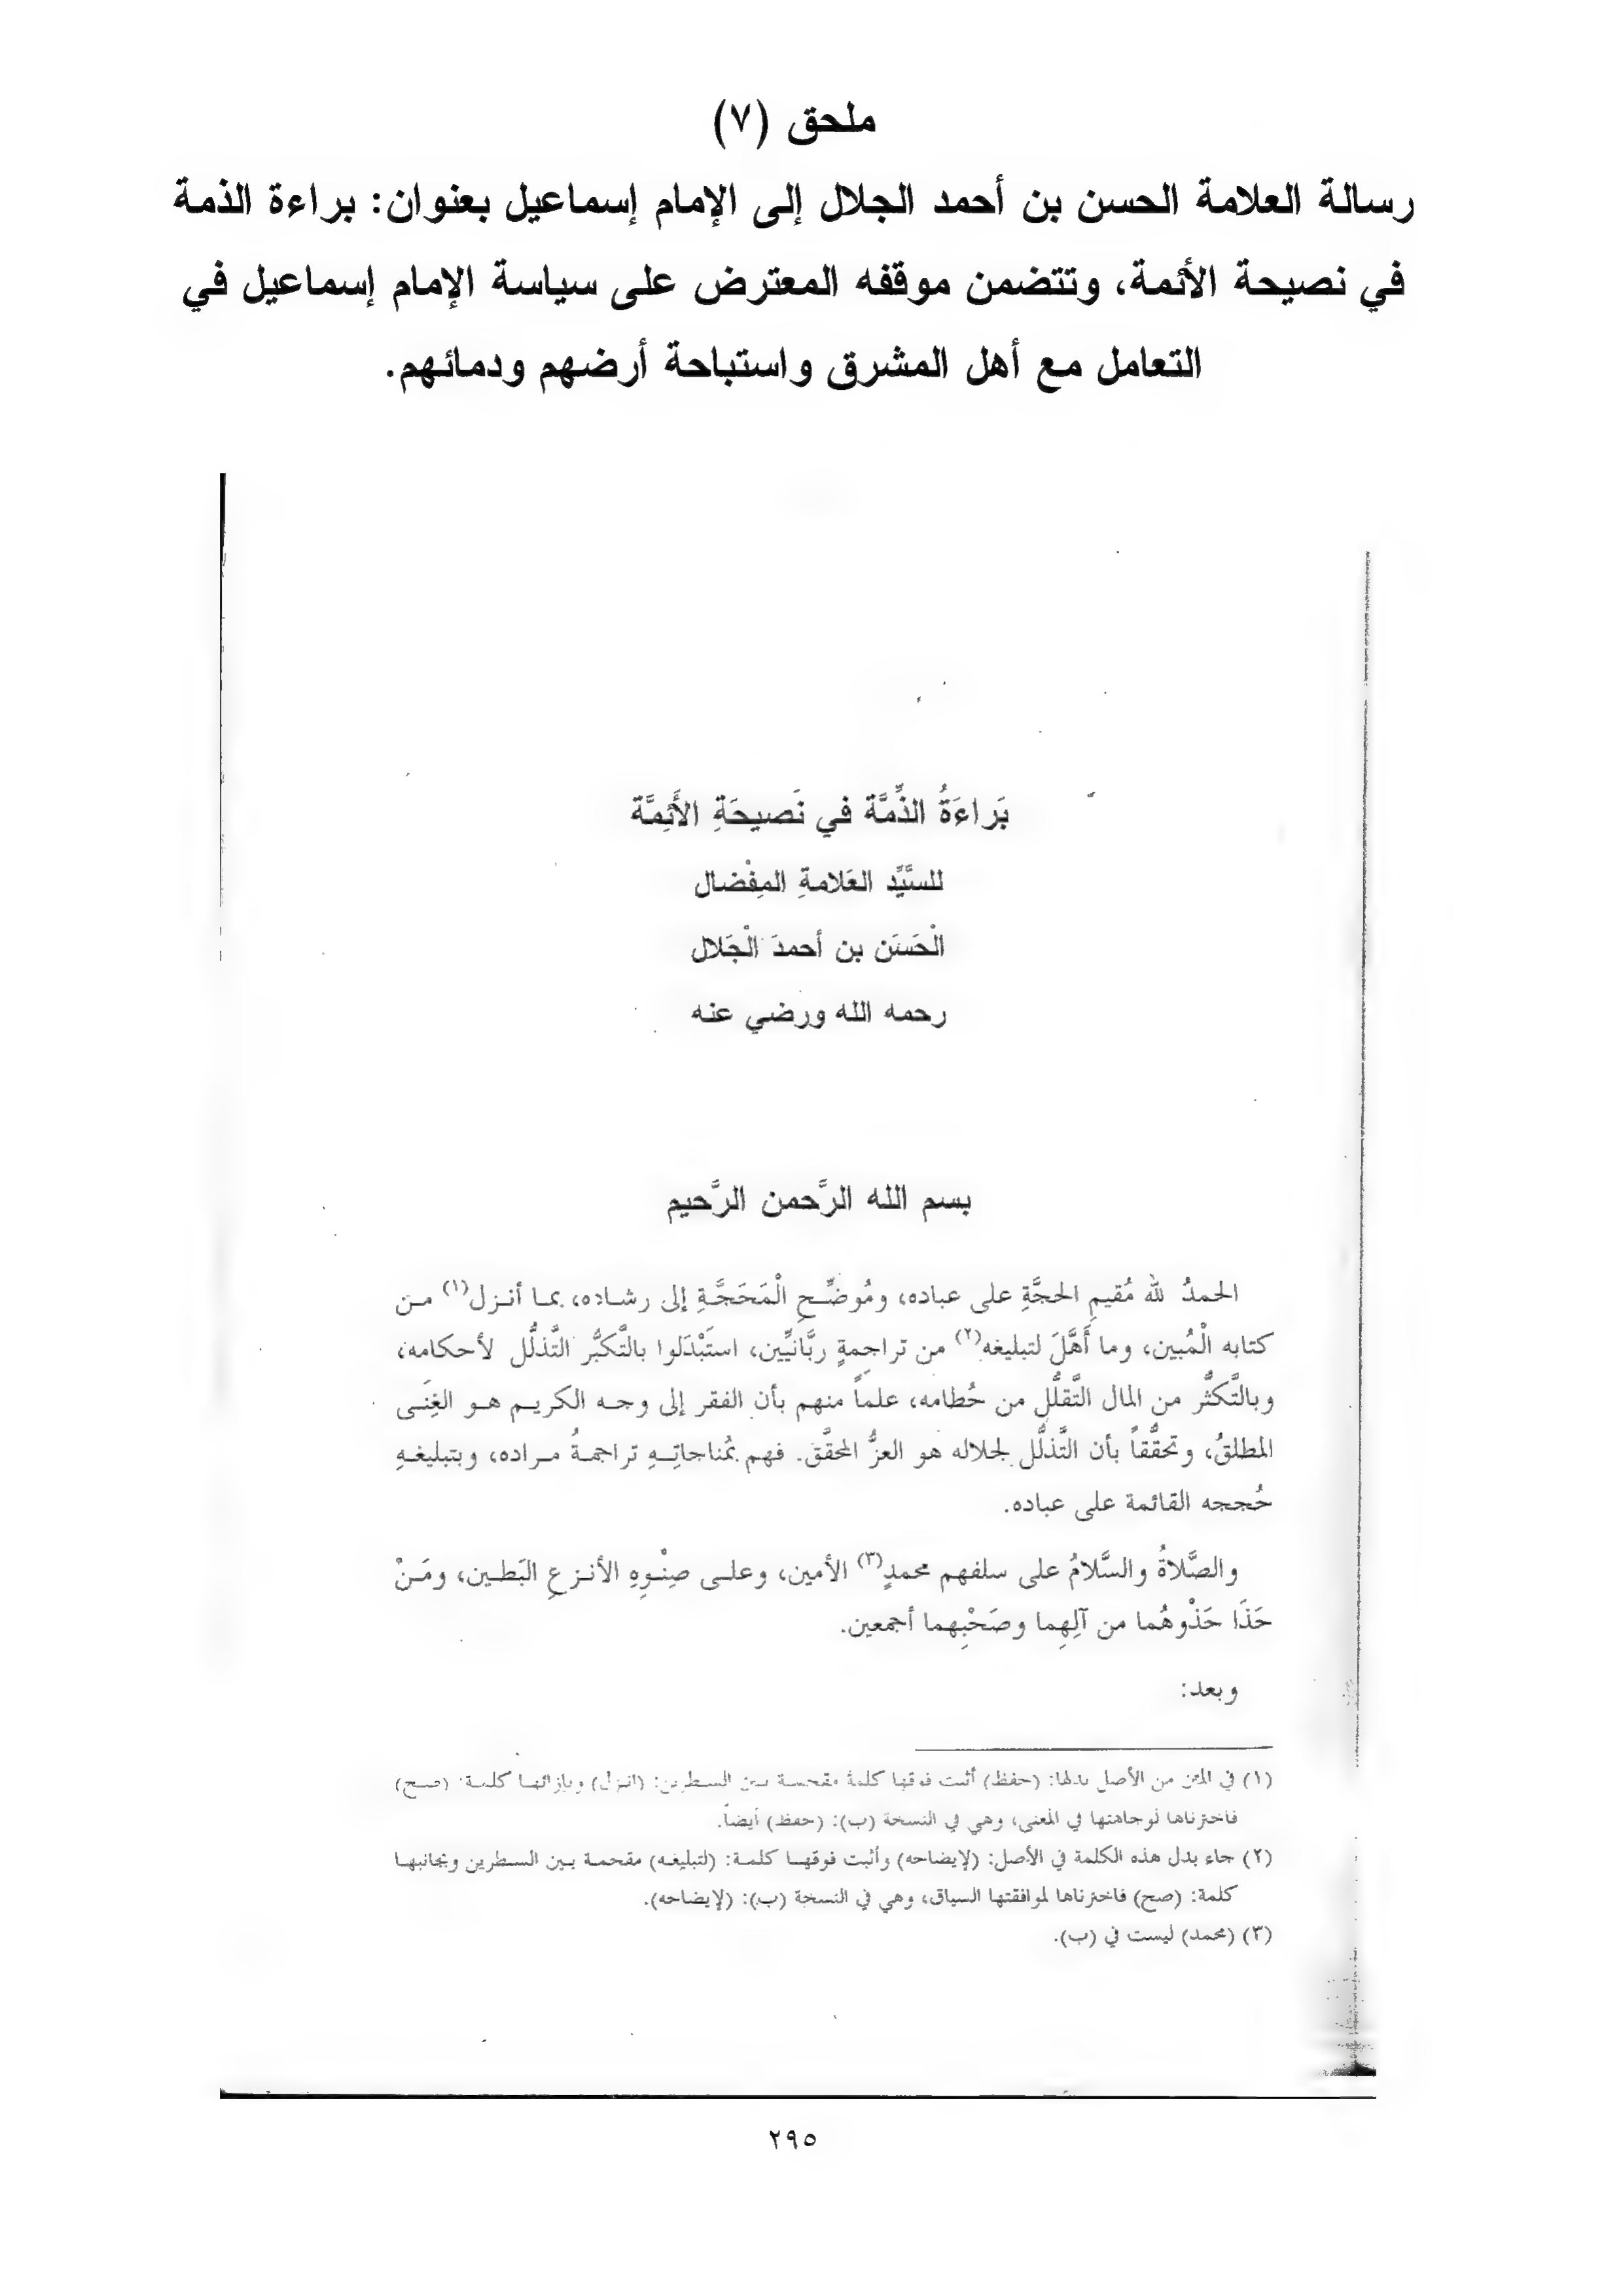 ملحق (٧)
رسالة العلامة الحسن بن أحمد الجلال إلى الإمام إسماعيل بعنوان: براءة الذمة
في نصيحة الأئمة، وتتضمن موقفه المعترض على سياسة الإمام إسماعيل في
التعامل مع أهل المشرق واستباحة أرضهم ودمائهم.
بَراءَةُ الذِّمَّة في نَصيحَةِ الأَئِمَّة
للسَّيِّد العَلامةِ المِفْضال
الْحَسَن بن أحمدَ الْجَلال
رحمه الله ورضي عنه
بسم الله الرَّحمن الرَّحيم
الحمدُ لله مُقيمِ الحجَّةِ على عباده، ومُوضِّحِ الْمَحَجَّةِ إلى رشاده، بما أنزل(١) من
كتابه الْمُبين، وما أَهَّلَ لتبليغه(٢) من تراجِمةٍ ربَّانيِّين، استَبْدَلوا بالتَّكبُّر التَّذلُّل لأحكامه،
وبالتَّكثُّر من المال التَّقلُّل من حُطامه، علماً منهم بأن الفقر إلى وجه الكريم هو الغِنَى
المطلقُ، وتحقُّقاً بأن التَّذلُّل لجلاله هو العزُّ المحقَّق. فهم بمُناجاتِهِ تراجمةُ مراده، وبتبليغهِ
حُججه القائمة على عباده.
والصَّلاةُ والسَّلامُ على سلفهم محمدٍ(٣) الأمين، وعلى صِنْوِهِ الأنزعِ البَطين، ومَنْ
حَذَا حَذْوهُما من آلِهِما وصَحْبِهما أجمعين.
وبعد:
(١) في المتن من الأصل بدلها: (حفظ) أثبت فوقها كلمة مقحمة بين السطرين: (انزل) وبإزائها كلمة (صح)
فاخترناها لوجاهتها في المعنى، وهي في النسخة (ب): (حفظ) أيضاً.
(٢) جاء بدل هذه الكلمة في الأصل: (لإيضاحه) وأثبت فوقها كلمة: (لتبليغه) مقحمة بين السطرين وبجانبها
كلمة: (صح) فاخترناها لموافقتها السياق، وهي في النسخة (ب): (لإيضاحه).
(٣) (محمد) ليست في (ب).
٢٩٥